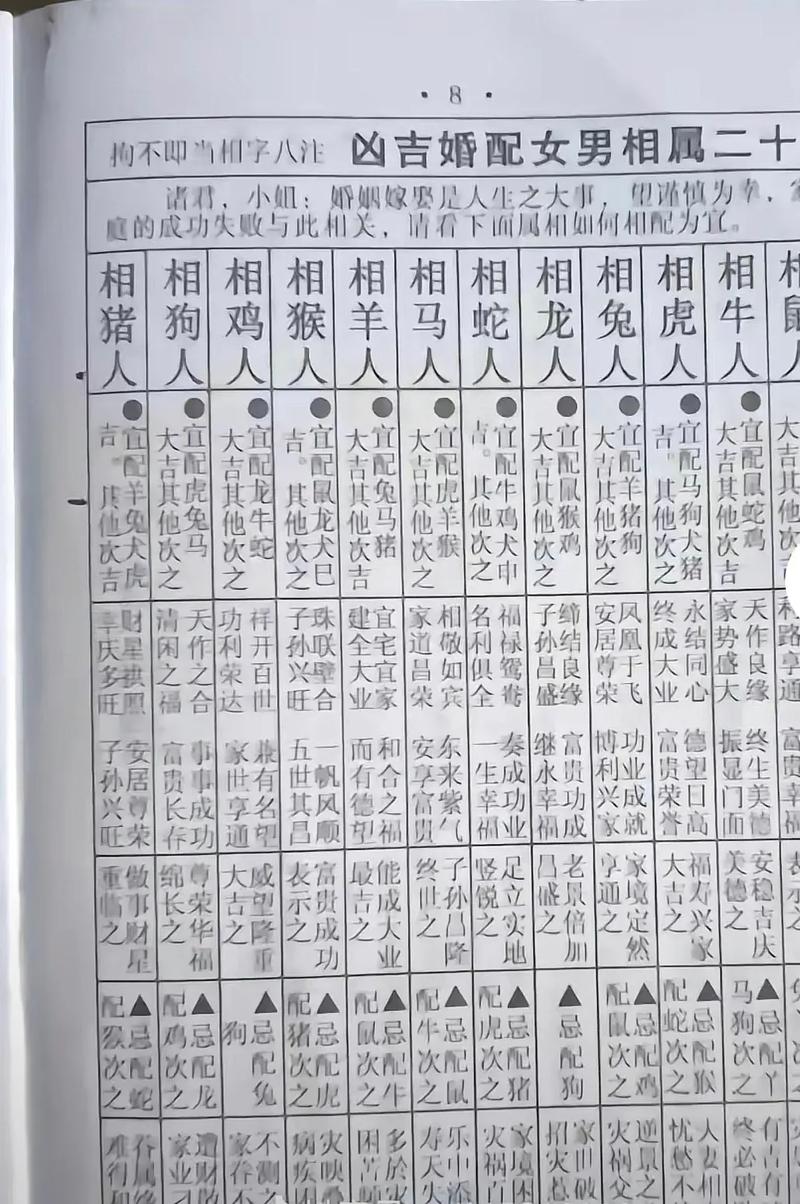 ·8·
十二属相男女配婚吉凶 注八字相当即不拘
诸君，小姐：婚姻嫁娶是人生之大事，望谨慎为幸，家
庭的成功失败与此相关，请看下面属相如何相配为宜。
相鼠人
相牛人
●宜配鼠蛇鸡
大吉其他次吉
天作良缘
家势盛大
终生美德
振显门面
安稳吉庆
美德之
▲忌配
马狗次之
相虎人
●宜配马狗犬猪
吉。其他次之
永结同心
终成大业
德望日高
富贵荣誉
福寿兴家
大吉之
▲忌配猴
配蛇次之
忧愁不
相兔人
●宜配羊猪狗
大吉其他次之
凤凰于飞
安居尊荣
功业成就
博利兴家
家境定然
亨通之
▲忌配鸡
配鼠次之
相龙人
●宜配鼠猴鸡
大吉其他次之
缔结良缘
子孙昌盛
富贵功成
继永幸福
老景倍加
昌盛之
▲忌配狗
家世破
招灾惹
相蛇人
●宜配牛鸡犬申
吉。其他次之
福禄鸳鸯
名利俱全
奏成功业
一生幸福
足立实地
竖锐之
▲忌配猪
配虎次之
家境困
灾祸百
相马人
●宜配虎羊猴
大吉其他次之
相敬如宾
家道昌荣
东来紫气
安享富贵
子孙昌隆
终世之
▲忌配鼠
配牛次之
乐中添
寿夭失
相羊人
●宜配兔马猪
大吉其他次吉
宜宅宜家
建全大业
和合之福
而有德望
能成大业
最吉之
▲忌配牛
配鼠次之
多於
困苦
相猴人
●宜配鼠龙犬巳
吉。其他次之
珠联壁合
子孙兴旺
一帆风顺
五世其昌
富贵成功
表示之
▲忌配虎
配猪次之
病疾
相鸡人
●宜配龙牛蛇
大吉其他次之
祥开百世
功利荣达
兼有名望
家世享通
威望隆重
大吉之
▲忌配兔
狗
不测
相狗人
●宜配虎兔马
大吉其他次之
天作之合
清闲之福
事事成功
富贵长存
尊荣华福
绵长之
▲忌配龙
配鸡次之
遭财
家业
相猪人
●宜配羊兔犬虎
吉。其他次吉
财星拱照
幸庆多旺
安居尊荣
子孙兴旺
做事财星
重临之
▲忌配蛇
配猴次之
难得